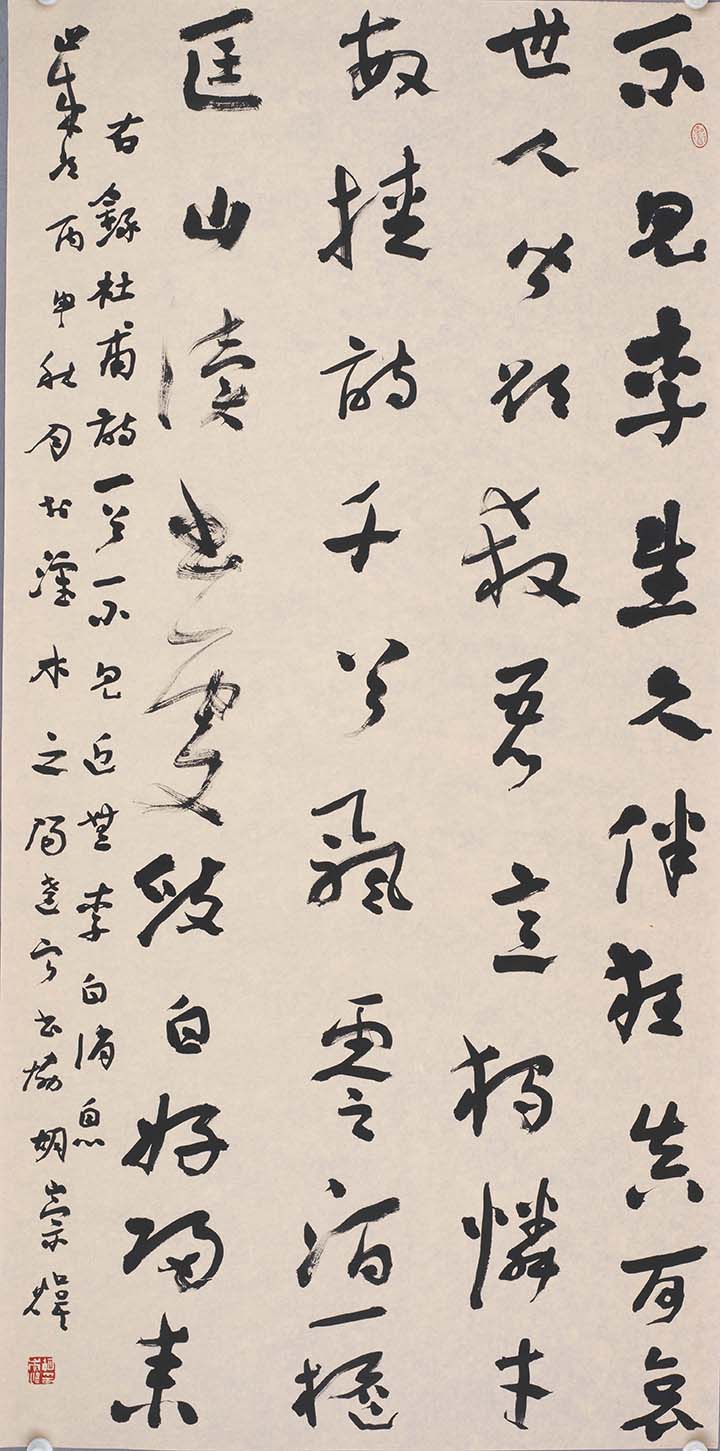 不見李生久佯狂真可哀
世人皆欲殺吾意獨憐才
敏捷詩千首飄零酒一杯
匡山讀書處頭白好歸來
右錄杜甫詩一首不見近無李白消息
歲次丙申秋月於瀋水之陽遼寧書協胡崇煒